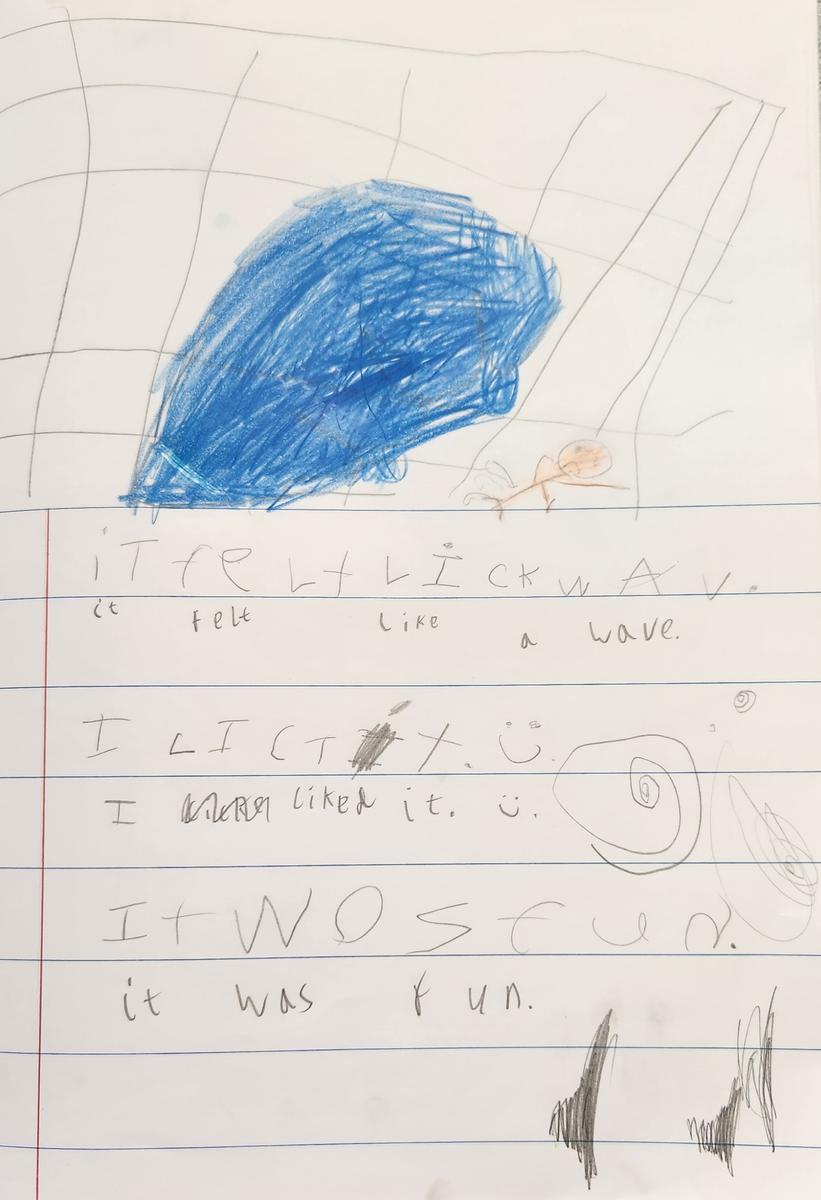 iT felt LICK wAv.
it felt like a wave.
I LICT it. ü.
I liked it. ü.
It WOS fun.
it was fun.